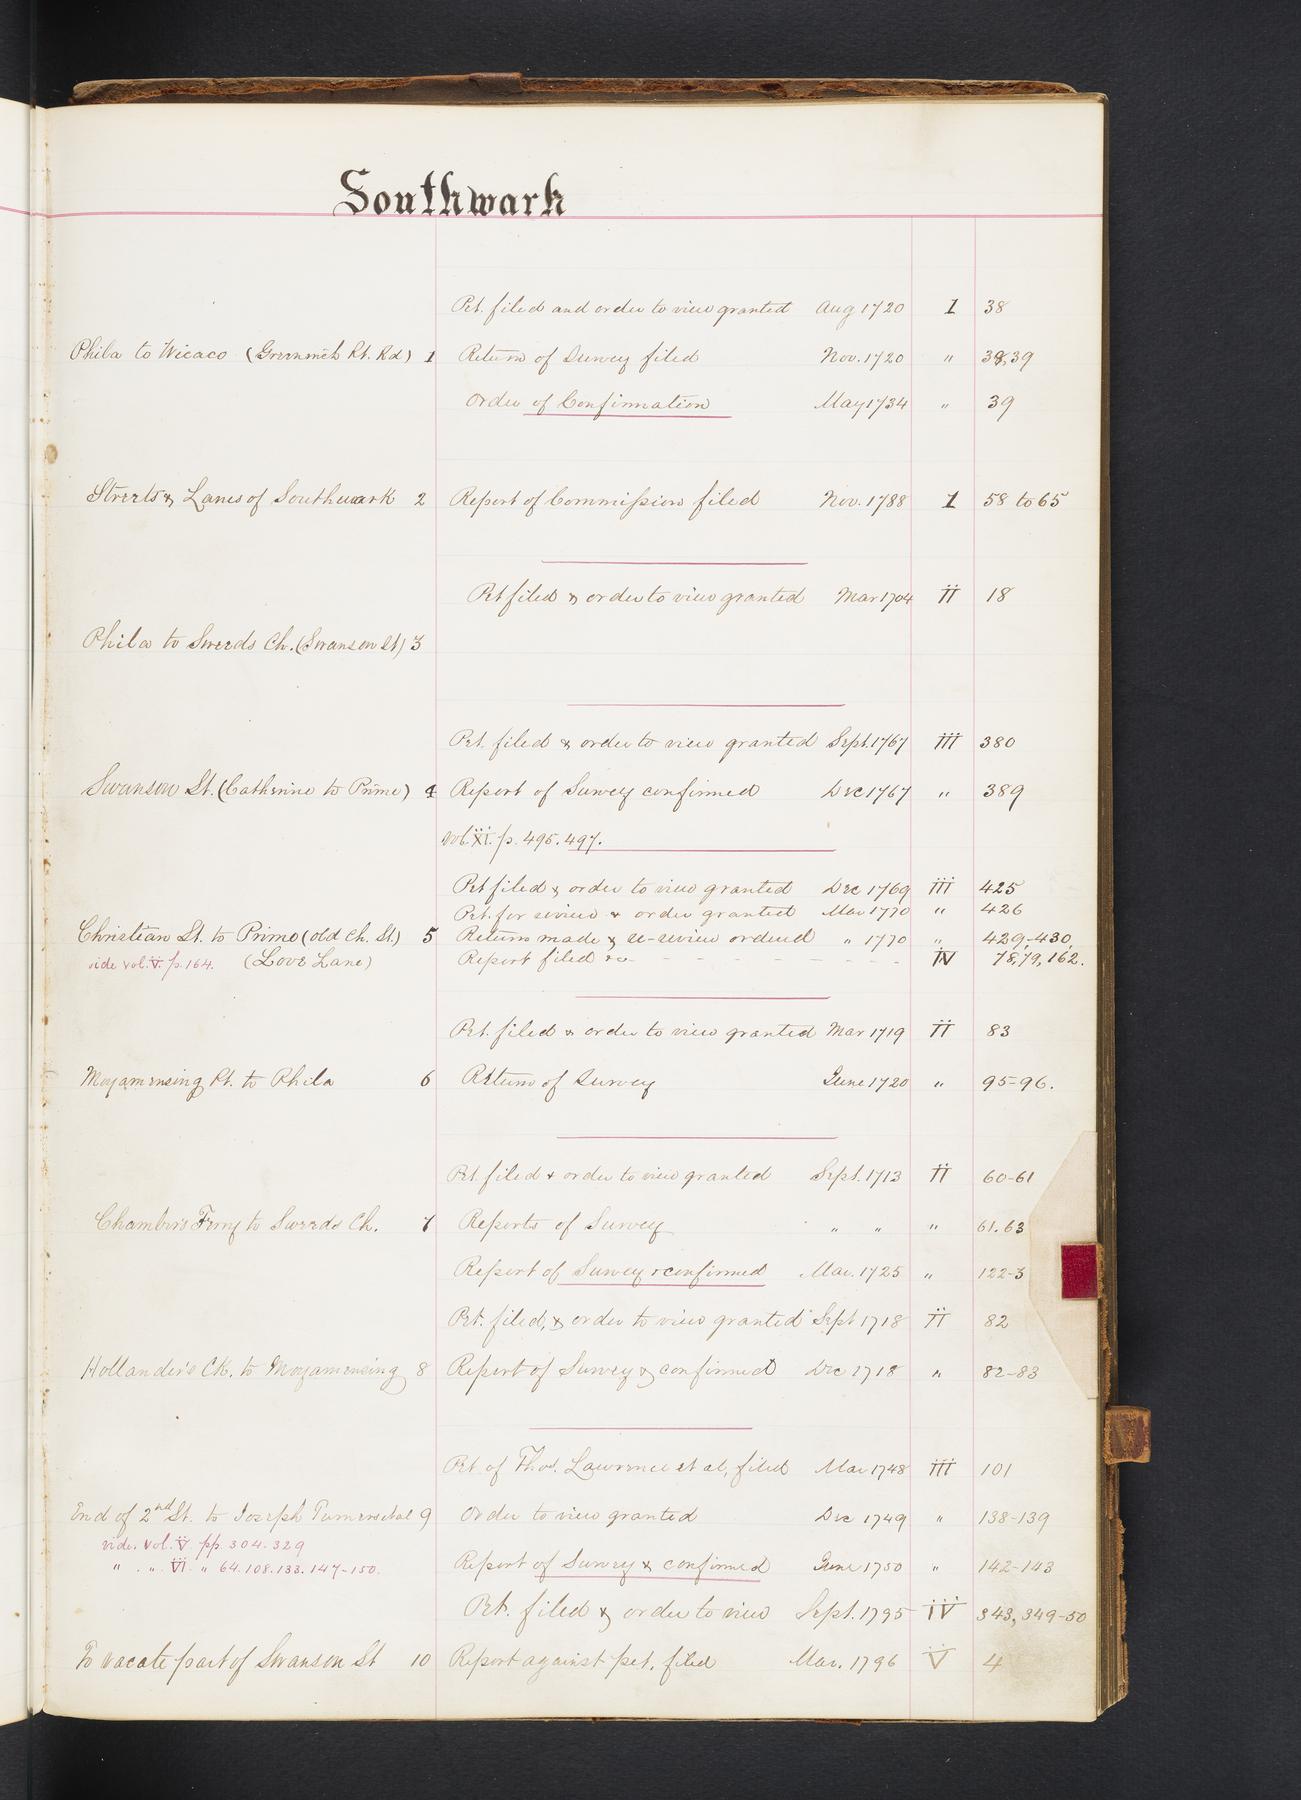 Southwark
Pet. filed and order to view granted Aug 1720 1 38
Phila to Wicaco (Greenwich Pt. Rd) 1 Return of Survey filed Nov. 1720 " 38,39
Order of Confirmation May 1734 " 39
Streets & Lanes of Southwark 2 Report of Commission filed Nov. 1788 1 58 to 65
Pet filed & order to view granted Mar 1704 II 18
Phila to Sweeds Ch. (Swanson St) 3
Pet. filed & order to view granted Sept. 1767 III 380
Swanson St. (Catherine to Prime) 4 Report of Survey confirmed Dec 1767 " 389
Vol. XI. p. 495. 497.
Pet filed & order to view granted Dec 1769 III 425
Pet. for review & order granted Mar 1770 " 426
Christian St. to Prime (old Ch. St.) 5 Return made & re-review ordered " 1770 " 429,-430,
vide vol. V. p. 164. (Love Lane) Report filed &c - - - - - - - - IV 78,79, 162.
Pet. filed & order to view granted Mar 1719 II 83
Moyamensing Rd. to Phila 6 Return of Survey June 1720 " 95-96.
Pet. filed & order to view granted Sept. 1713 II 60-61
Chamber's Ferry to Sweeds Ch. 7 Reports of Survey " " " 61. 63
Report of Survey & confirmed Mar. 1725 " 122-3
Pet. filed, & order to view granted Sept 1718 II 82
Hollander's CK. to Moyamensing 8 Report of Survey & confirmed Dec 1718 " 82-83
Pet. of Thos. Lawrence et al, filed Mar 1748 III 101
End of 2nd St. to Joseph 9 Order to view granted Dec 1749 " 138-139
vide. vol. V pp. 304. 329
" . ". VI. " 64. 108. 133. 147-150. Report of Survey & confirmed June 1750 " 142-143
Pet. filed & order to view Sept. 1795 IV 343, 349-50
To vacate part of Swanson St 10 Report against pet. filed Mar. 1796 V 4